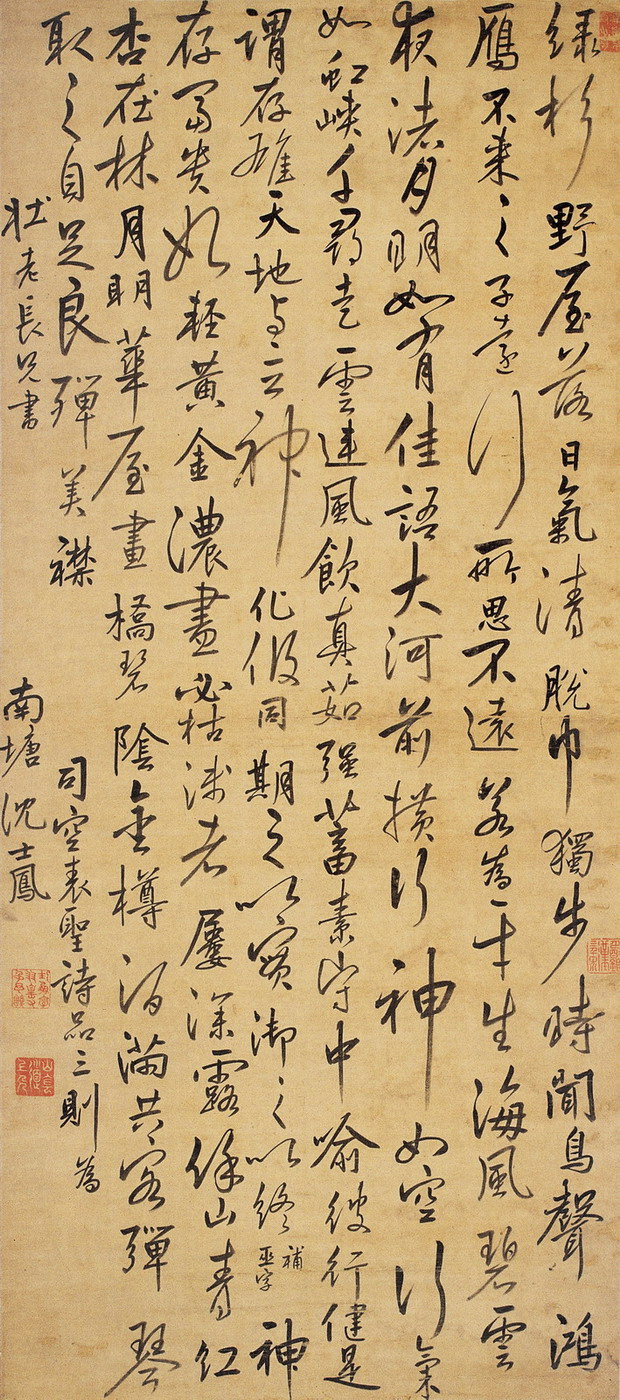 緑杉野屋落日氣清脫巾獨步時聞鳥聲鴻
鴈不來之子遠行所思不遠若為平生海風碧雲
夜渚月明如有佳語大河前橫行神如空行氣
如虹峽千尋走雲連風飲真茹強蓄素守中喻彼行健是
謂存雄天地与立神化攸同期之以實御之以終補巫字神
存富貴始輕黃金濃盡必枯淺者屢深露餘山青紅
杏在林月明華屋畫橋碧陰金樽酒滿共客彈琴
取之自足良殫美襟
司空表聖詩品三則為
壯老長兄書
南塘沈士鳳